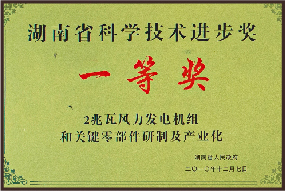 湖南省科学技术进步奖
一等奖
2兆瓦风力发电机组
和关键零部件研制及产业化
湖南省人民政府
二〇一〇年十二月七日